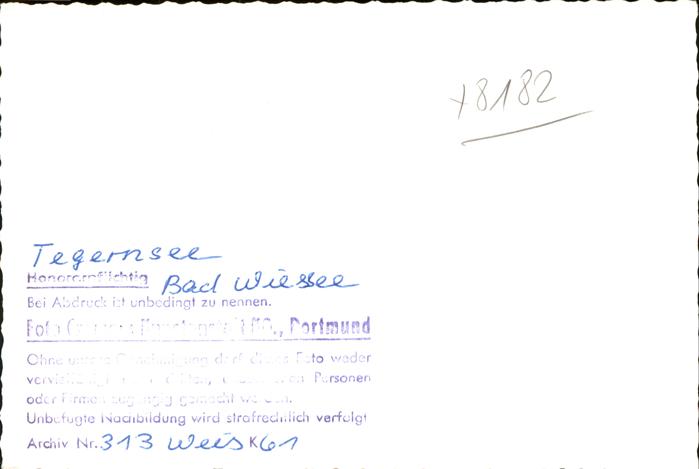 x8182
Tegernsee
Honorarpflichtig Bad Wiessee
Bei Abdruck ist unbedingt zu nennen.
Foto Dortmund
Ohne unsere Genehmigung darf dieses Foto weder
Personen
oder Firmen zugängig gemacht werden.
Unbefugte Nachbildung wird strafrechtlich verfolgt
Archiv Nr. 313 Weis K61